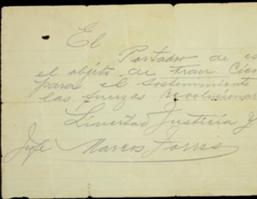 El
Portador de es
el objeto de traer Cien
para el sostenimiento
las fuerzas revolucionar
Livertad Justicia y
Jefe Marcos Torres